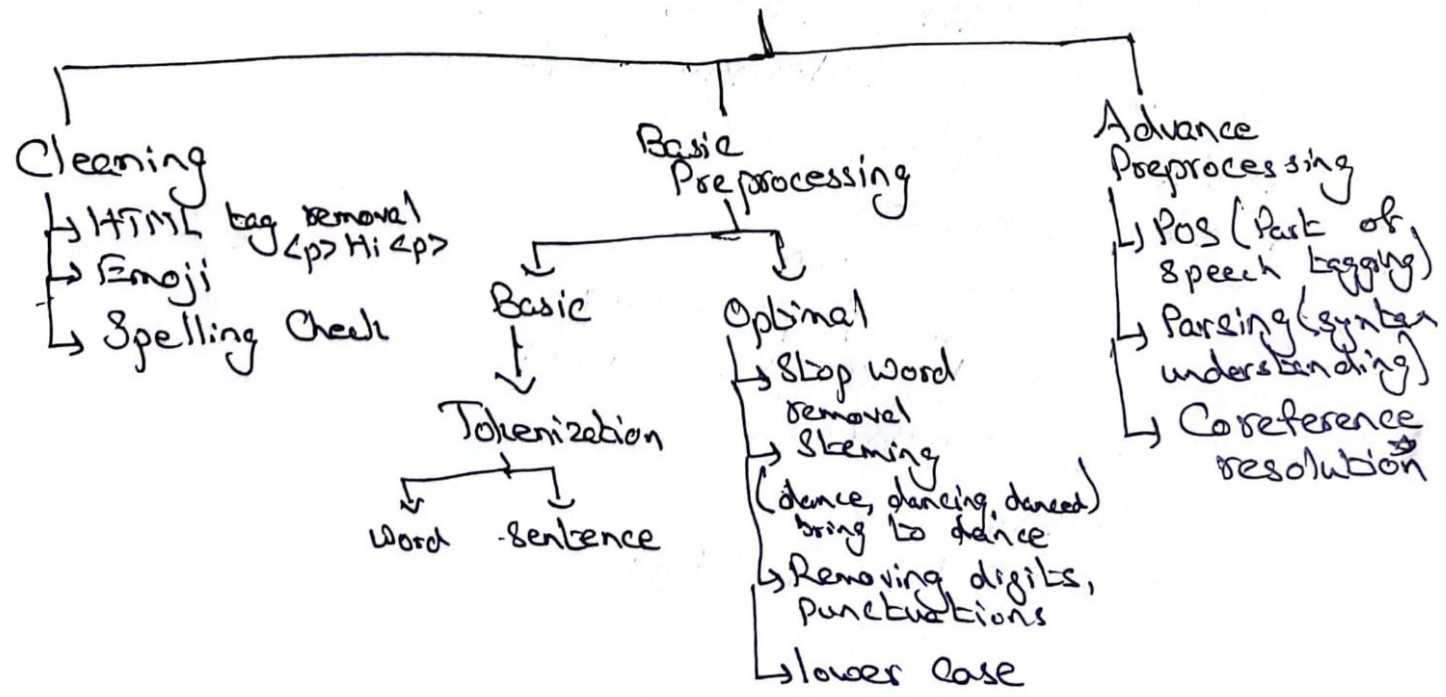 Cleaning
HTML tag removal
<p> Hi <p>
Emoji
Spelling Check
Basic
Preprocessing
Basic
Tokenization
word sentence
Optimal
Stop word
removal
Steming
(dance, dancing, danced)
bring to dance
Removing digits,
punctuations
lower case
Advance
Preprocessing
POS (Part of
speech tagging)
Parsing (syntax
understanding)
Coreference
resolution